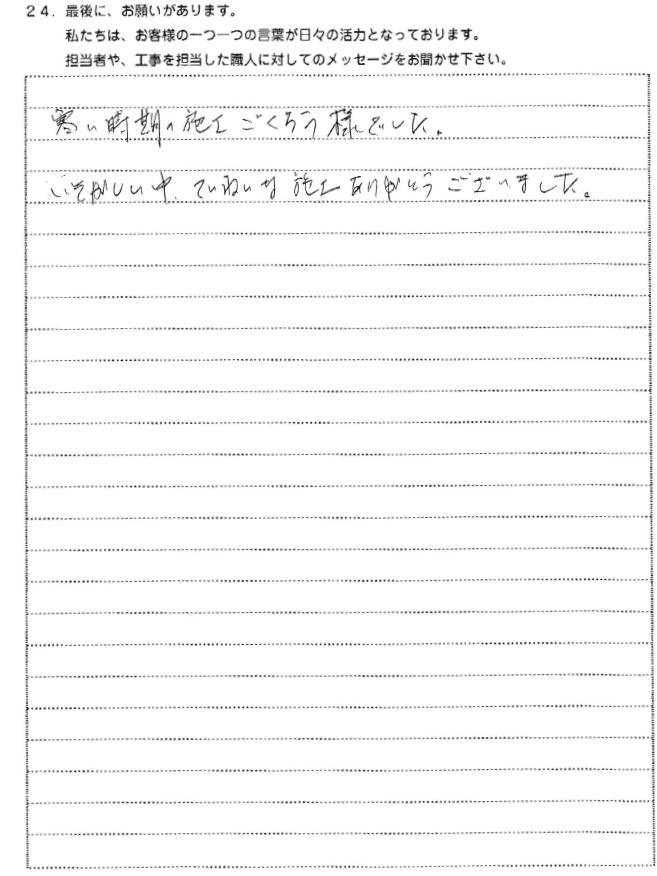 ２４．最後に、お願いがあります。
私たちは、お客様の一つ一つの言葉が日々の活力となっております。
担当者や、工事を担当した職人に対してのメッセージをお聞かせ下さい。
寒い時期の施工ごくろう様でした。
いそがしい中、ていねいな施工ありがとうございました。